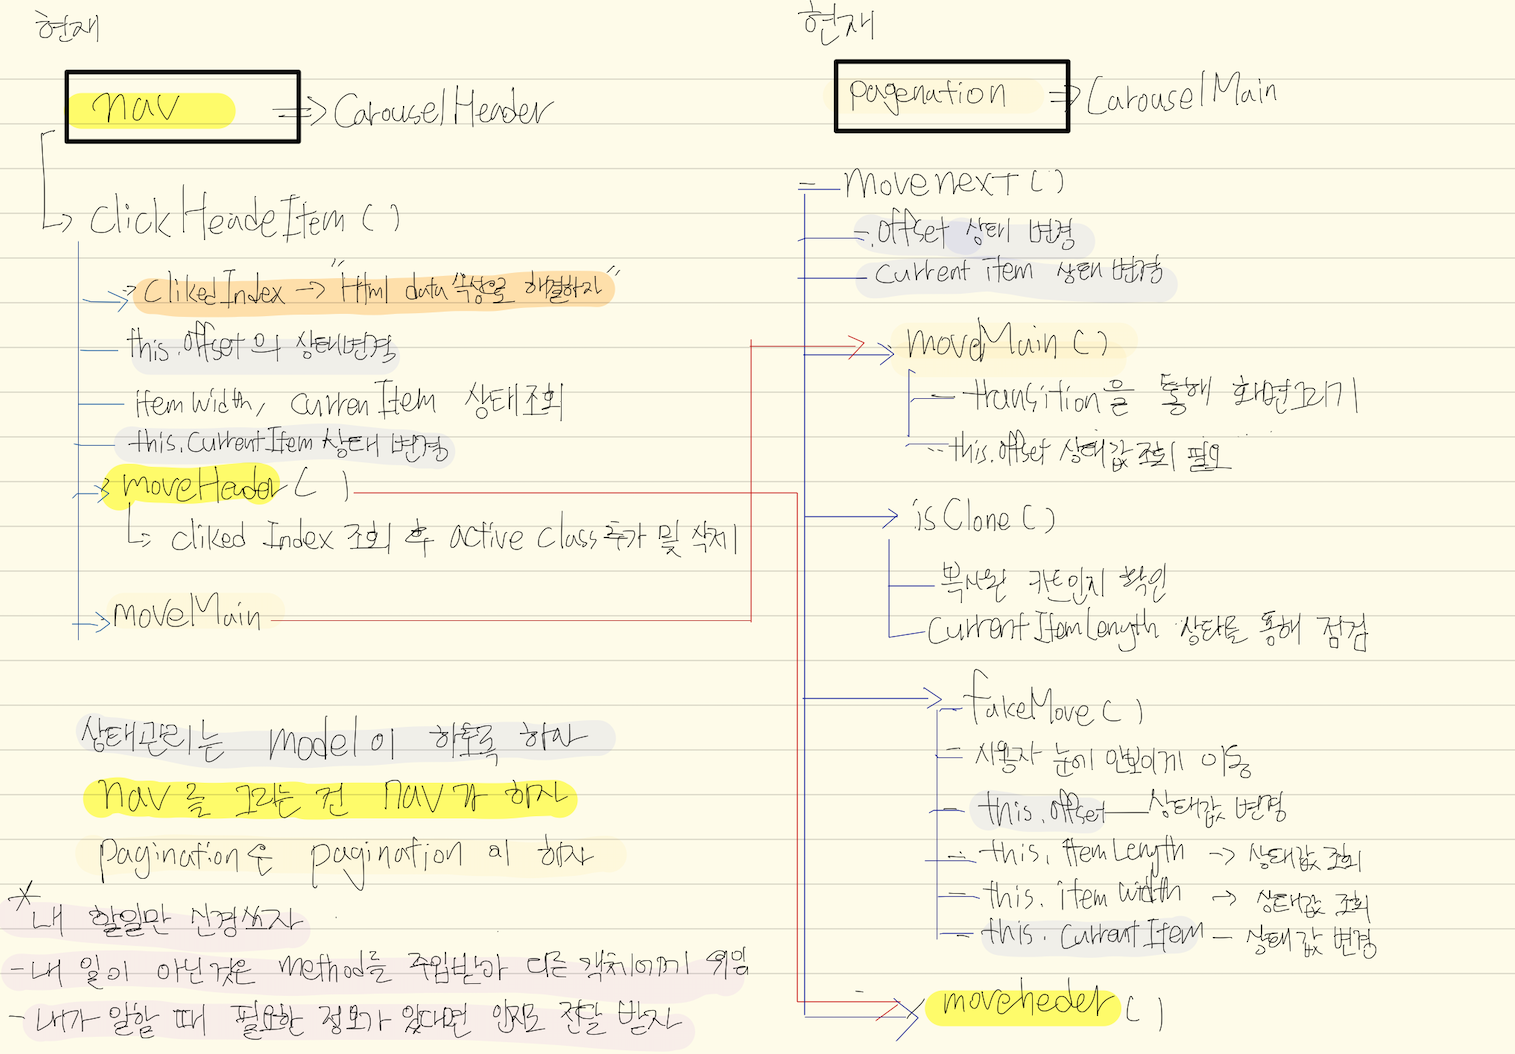 현재
nav => CarouselHeader
clickHeadeItem ( )
clikedIndex -> "Html data 속성으로 해결하자"
this.offset의 상태변경
itemwidth, currenItem 상태조회
this.currentItem 상태 변경
moveHeader ( )
cliked Index 조회 후 active class 추가 및 삭제
moveMain
상태관리는 model이 하도록 하자
nav를 그리는 건 nav가 하자
pagination은 pagination이 하자
* 내 할일만 신경쓰자
- 내 일이 아닌것은 method를 주입받아 다른 객체에게 위임
- 내가 일할 때 필요한 정보가 있다면 인자로 전달 받자
현재
pagenation => CarouselMain
movenext ( )
offset 상태 변경
current item 상태변경
moveMain ( )
transition을 통해 화면그리기
this.offset 상태값 조회 필요
isClone ( )
복사된 카드인지 확인
currentItemLength 상태를 통해 점검
fakeMove ( )
사용자 눈에 안보이게 이동
this.offset 상태값 변경
this.itemLength -> 상태값 조회
this.item width -> 상태값 조회
this.currentItem - 상태값 변경
moveheder ( )